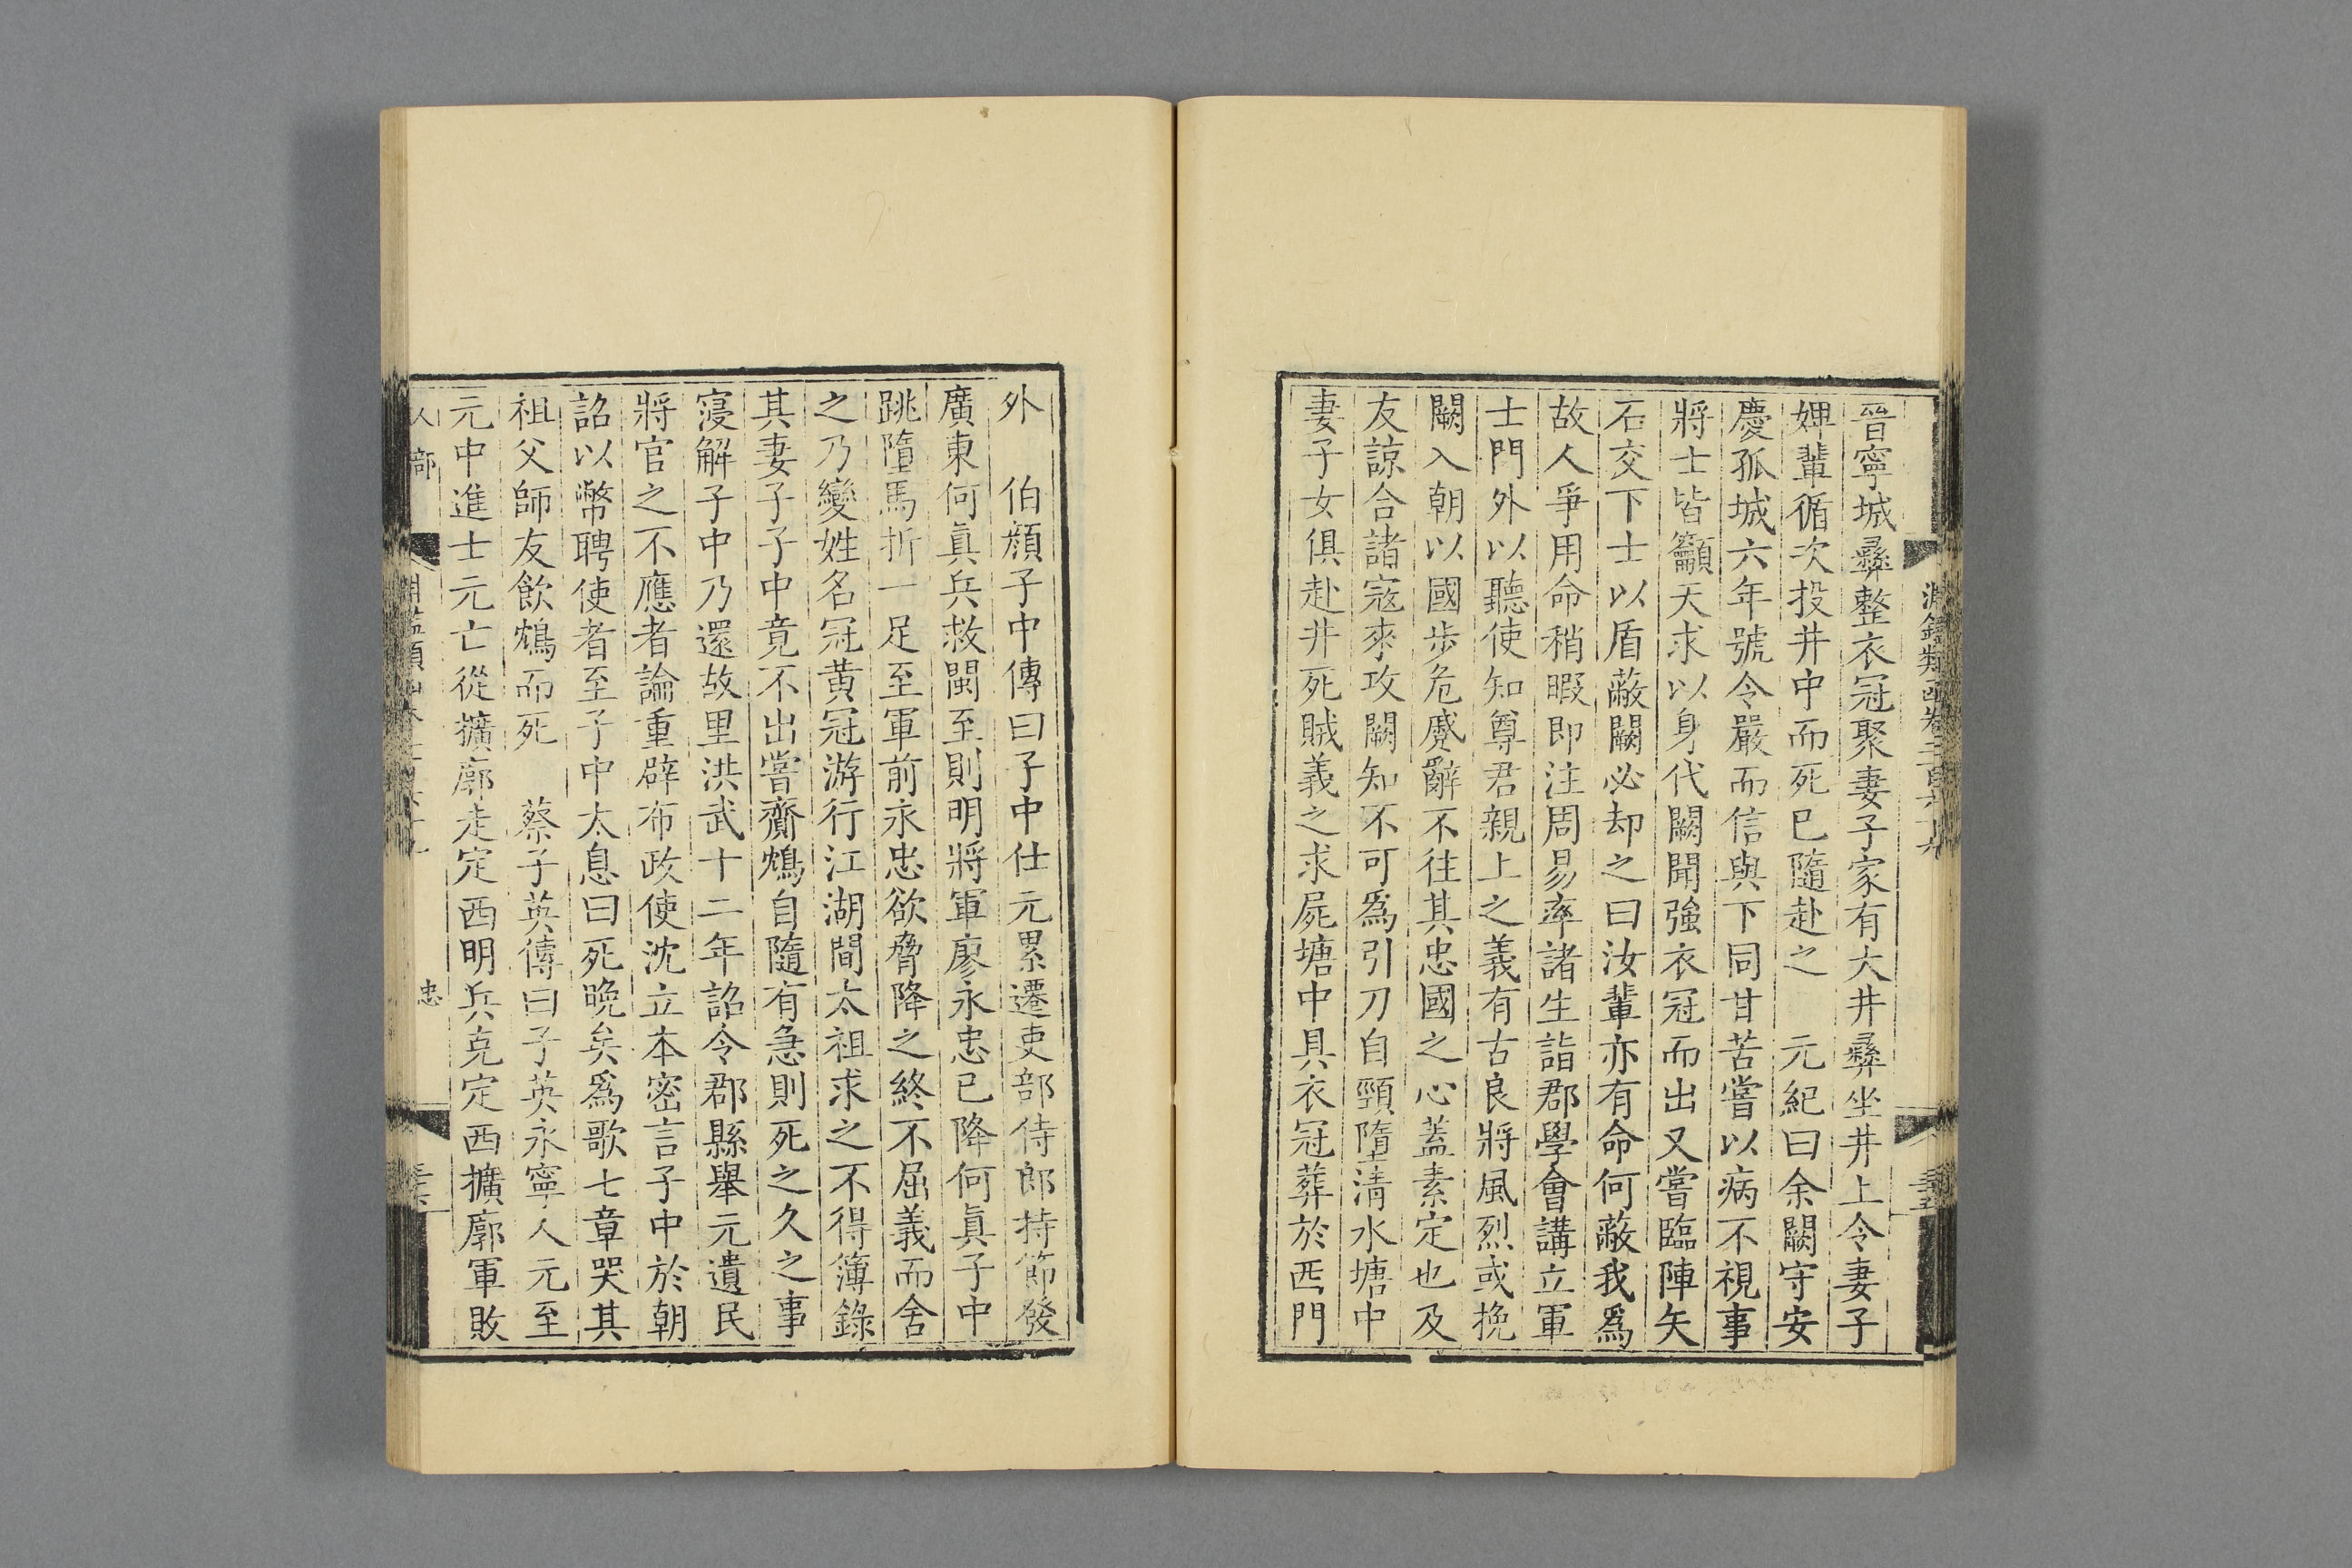 晉寧城彝整衣冠聚妻子家有大井彝坐井上令妻子
婢輩循次投井中而死已隨赴之　元紀曰余闕守安
慶孤城六年號令嚴而信與下同甘苦嘗以病不視事
將士皆籲天求以身代闕聞強衣冠而出又嘗臨陣矢
石交下士以盾蔽闕必却之曰汝輩亦有命何蔽我爲
故人爭用命稍暇即注周易率諸生詣郡學會講立軍
士門外以聽使知尊君親上之義有古良將風烈或挽
闕入朝以國步危蹙辭不往其忠國之心蓋素定也及
友諒合諸寇來攻闕知不可爲引刀自頸墮清水塘中
妻子女俱赴井死賊義之求屍塘中具衣冠葬於西門
外　伯顔子中傳曰子中仕元累遷吏部侍郎持節發
廣東何眞兵救閩至則明將軍廖永忠已降何眞子中
跳墮馬折一足至軍前永忠欲脅降之終不屈義而舍
之乃變姓名冠黄冠游行江湖間太祖求之不得簿錄
其妻子子中竟不出嘗齎鴆自隨有急則死之久之事
寖解子中乃還故里洪武十二年詔令郡縣舉元遺民
將官之不應者論重辟布政使沈立本密言子中於朝
詔以幣聘使者至子中太息曰死晚矣爲歌七章哭其
祖父師友飲鴆而死　蔡子英傳曰子英永寧人元至
元中進士元亡從擴廓走定西明兵克定西擴廓軍敗
人部
忠